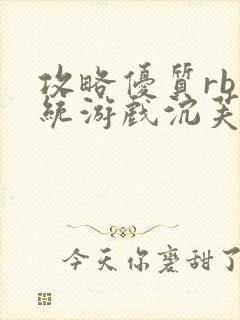 攻略優質rb
統游戲沉芙
今天你磨甜了